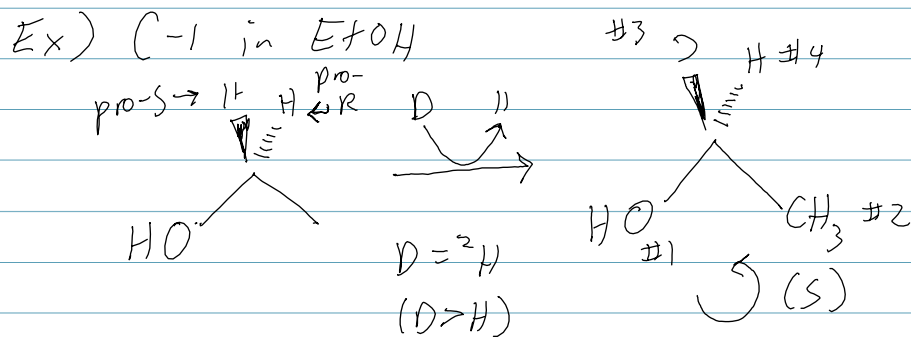 Ex) C-1 in EtOH
pro-S → H H ← pro-R
HO
D H
D = ²H
(D > H)
#3 D H #4
HO #1
CH₃ #2
(S)